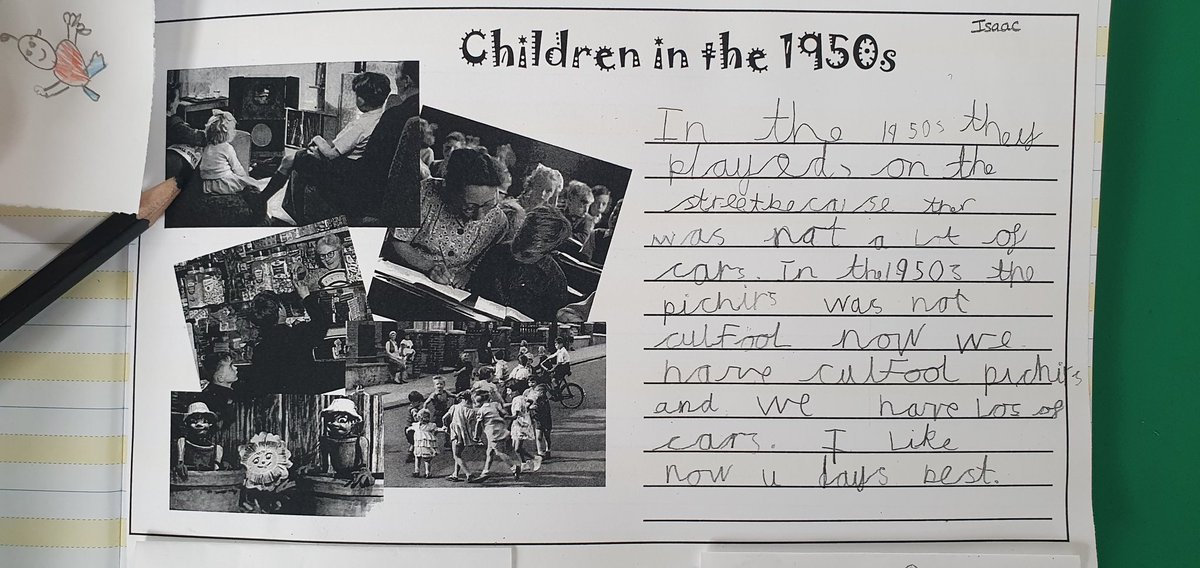 Isaac
Children in the 1950s
In the 1950s they
played on the
streetbecause ther
was not a lot of
cars. In the1950s the
pichirs was not
culFool now we
have culFool pichirs
and we have Los of
cars. I Like
now u days best.